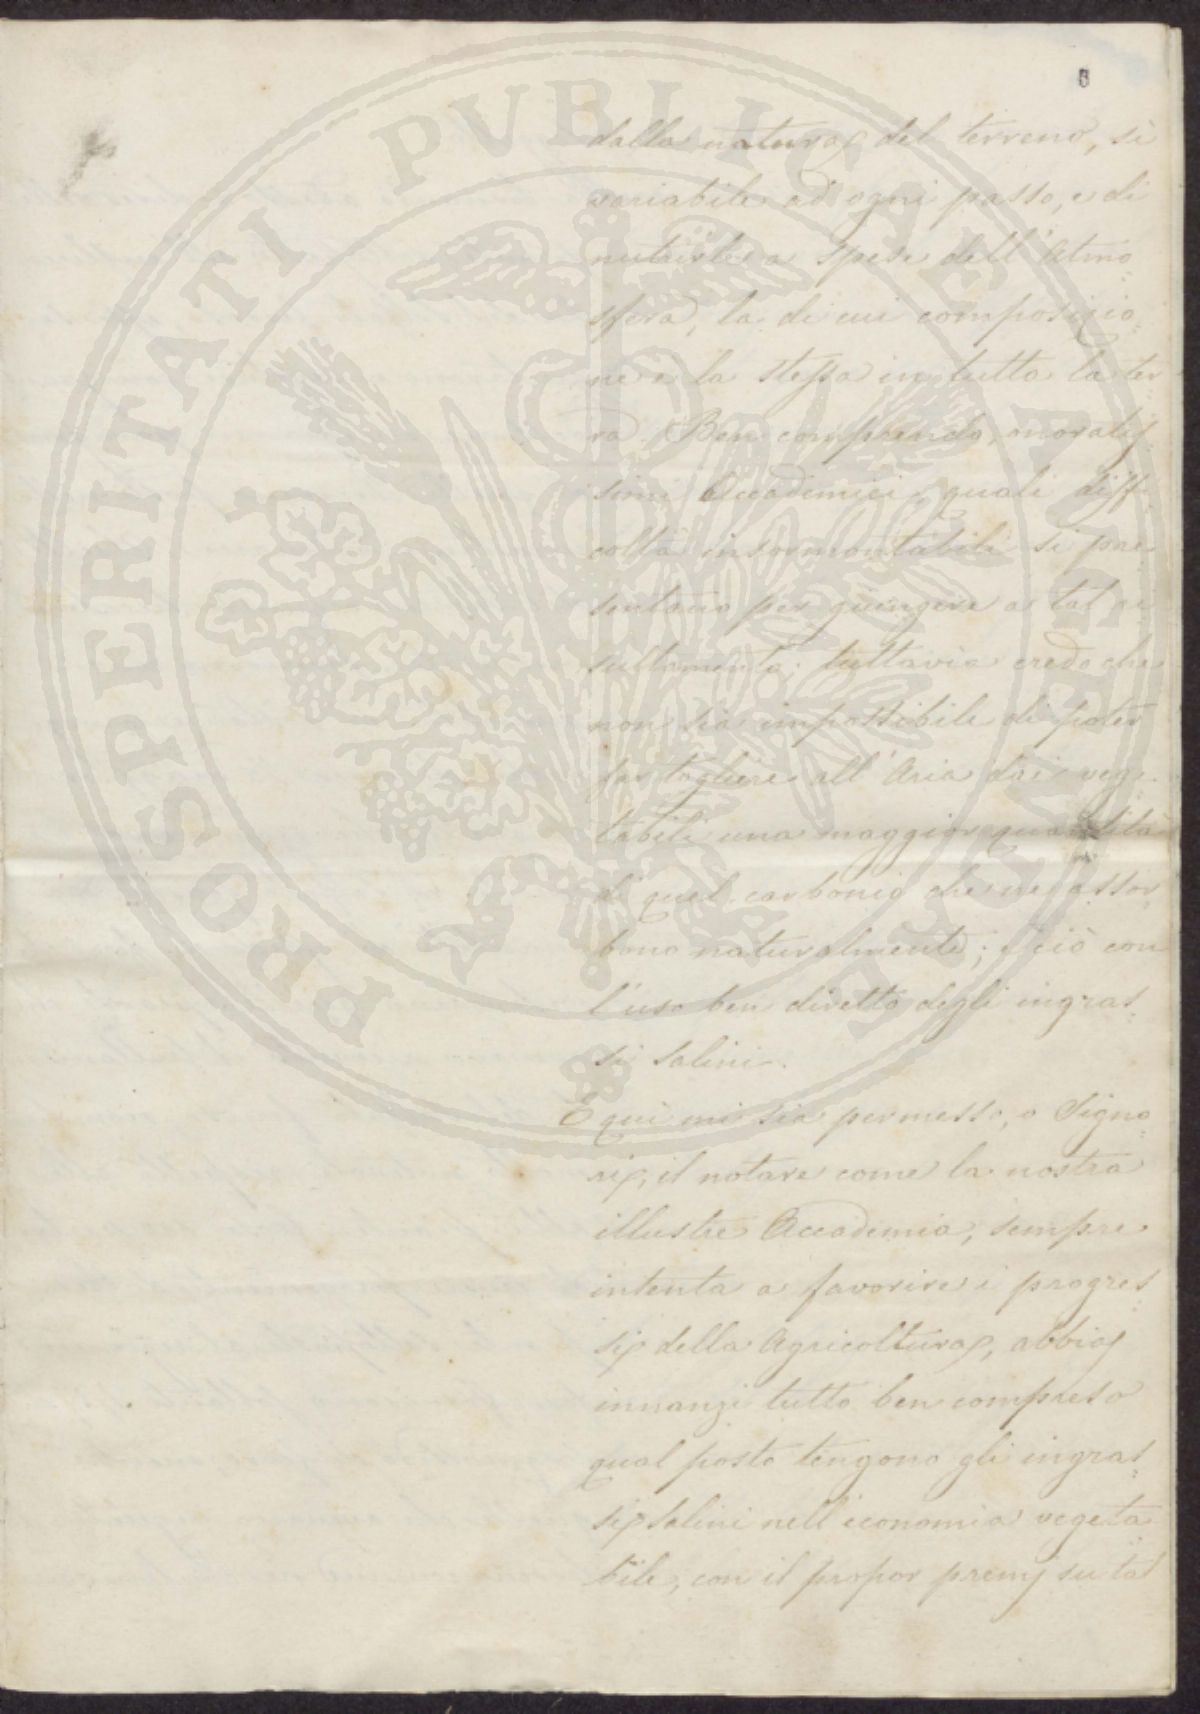 6
dalla natura del terreno, sì
variabile ad ogni passo, e di
nutrirle a spese dell'Atmo
sfera, la di cui composizio
ne è la stessa in tutta la ter
ra. Ben comprendo, onoratis
simi Accademici, quali diffi
coltà insormontabili si pre
sentano per giungere a tal ri
sultamento; tuttavia credo che
non sia impossibile di poter
far togliere all'Aria dai vege
tabili una maggior quantità
di quel carbonio che ne assor
bono naturalmente; e ciò con
l'uso ben diretto degli ingras
si salini.
E qui mi sia permesso, o Signo
ri, il notare come la nostra
illustre Accademia, sempre
intenta a favorire i progres
si della Agricoltura, abbia
innanzi tutto ben compreso
qual posto tengono gli ingras
si salini nell'economia vegeta
bile, con il propor premj su tal
PROSPERITATI PVBLICAE AVGENDAE